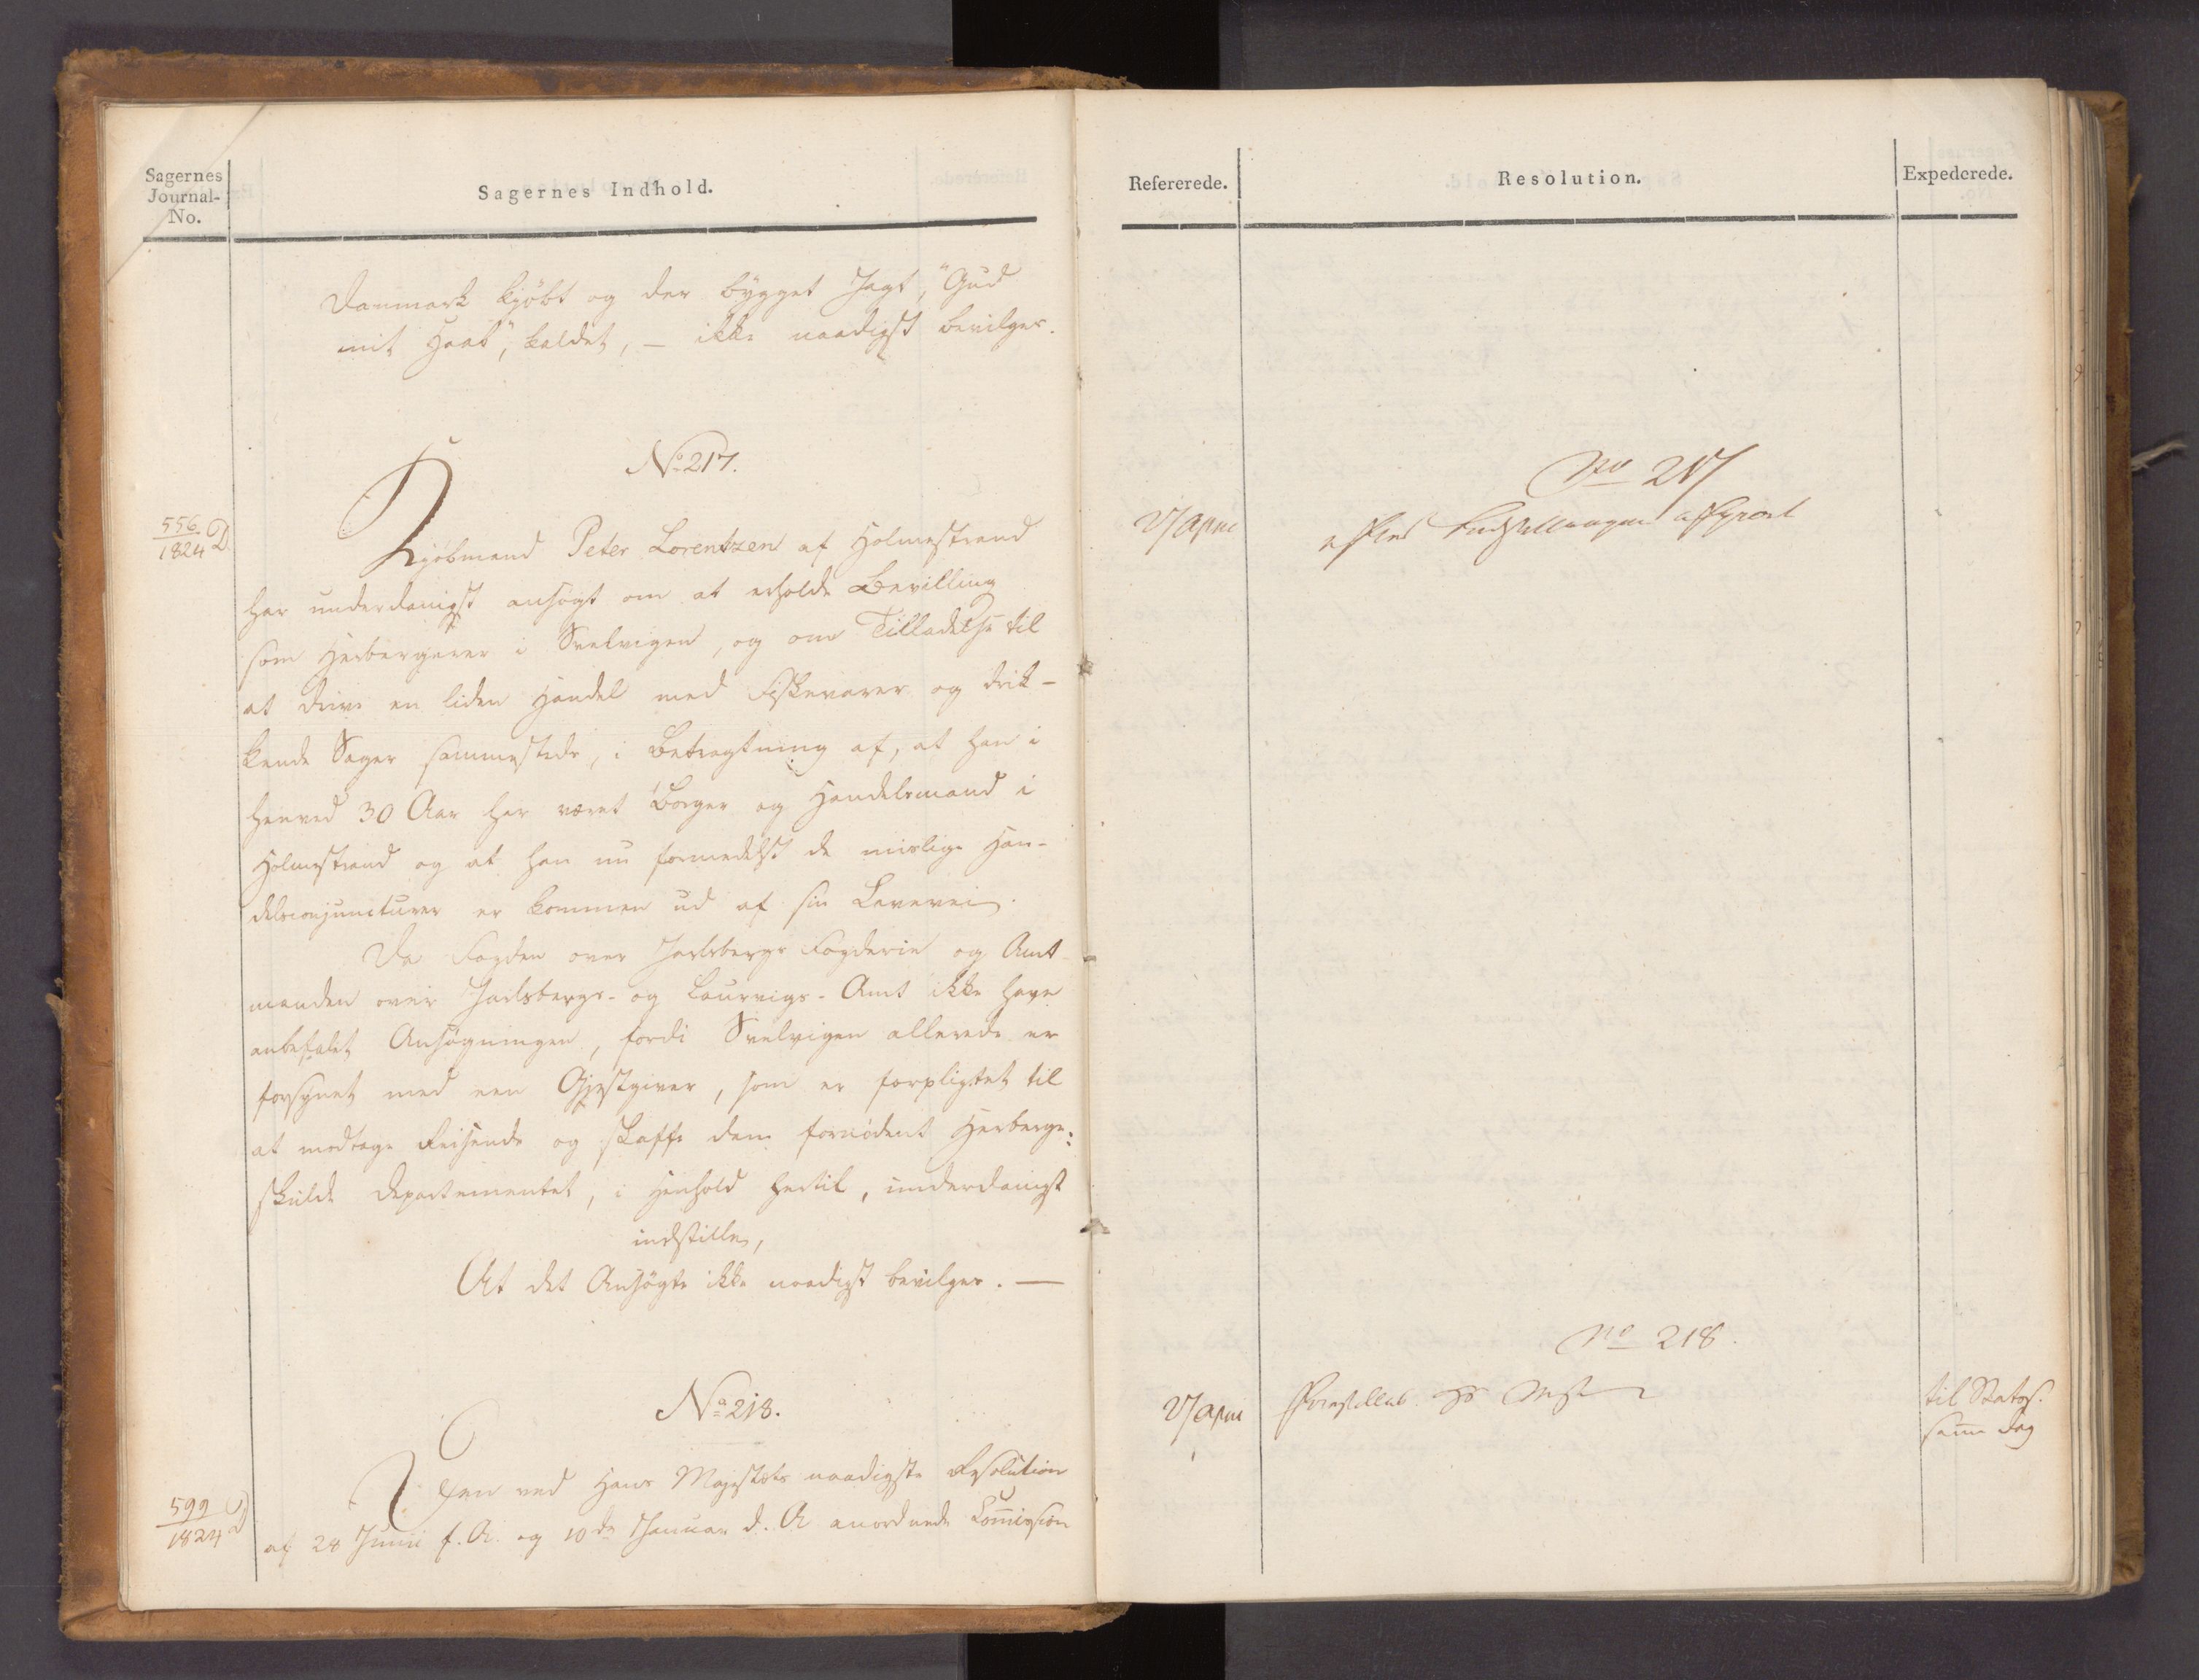 Sagernes
Journal-
No.
Sagernes Indhold.
Danmark kjöbt og der bygget Jagt, "Gud
mit Haab", kaldet, – ikke naadigst bevilges.
No 217.
556
1824 D.
Kjöbmand Peter Lorentzen af Holmestrand
har underdanigst ansögt om at erholde Bevilling
som Herbergerer i Svelvigen, og om Tilladelse til
at drive en liden Handel med Fiskevarer og drik-
kende Sager sammesteds, i Betragtning af, at han i
henved 30 Aar har været Borger og Handelsmand i
Holmestrand og at han nu formedelst de mislige Han-
delsconjuncturer er kommen ud af sin Levevei.
Da Fogden over Jarlsbergs Fogderie og Amt-
manden over Jarlsbergs- og Laurvigs- Amt ikke have
anbefalet Ansögningen, fordi Svelvigen allerede er
forsynet med een Gjestgiver, som er forpligtet til
at modtage Reisende og skaffe dem fornödent Herberge:
skulde Departementet, i Henhold hertil, underdanigst
indstille,
At det Ansögte ikke naadigst bevilges. —
No 218.
599
1824 D
Den ved Hans Majestæts naadigste Resolution
af 28 Junii f. A. og 10de Januar d. A anordnede Commission
Refererede.
Resolution.
Expederede.
No 217
efter Indstillingen
No 218.
til Statss.
samme Dag